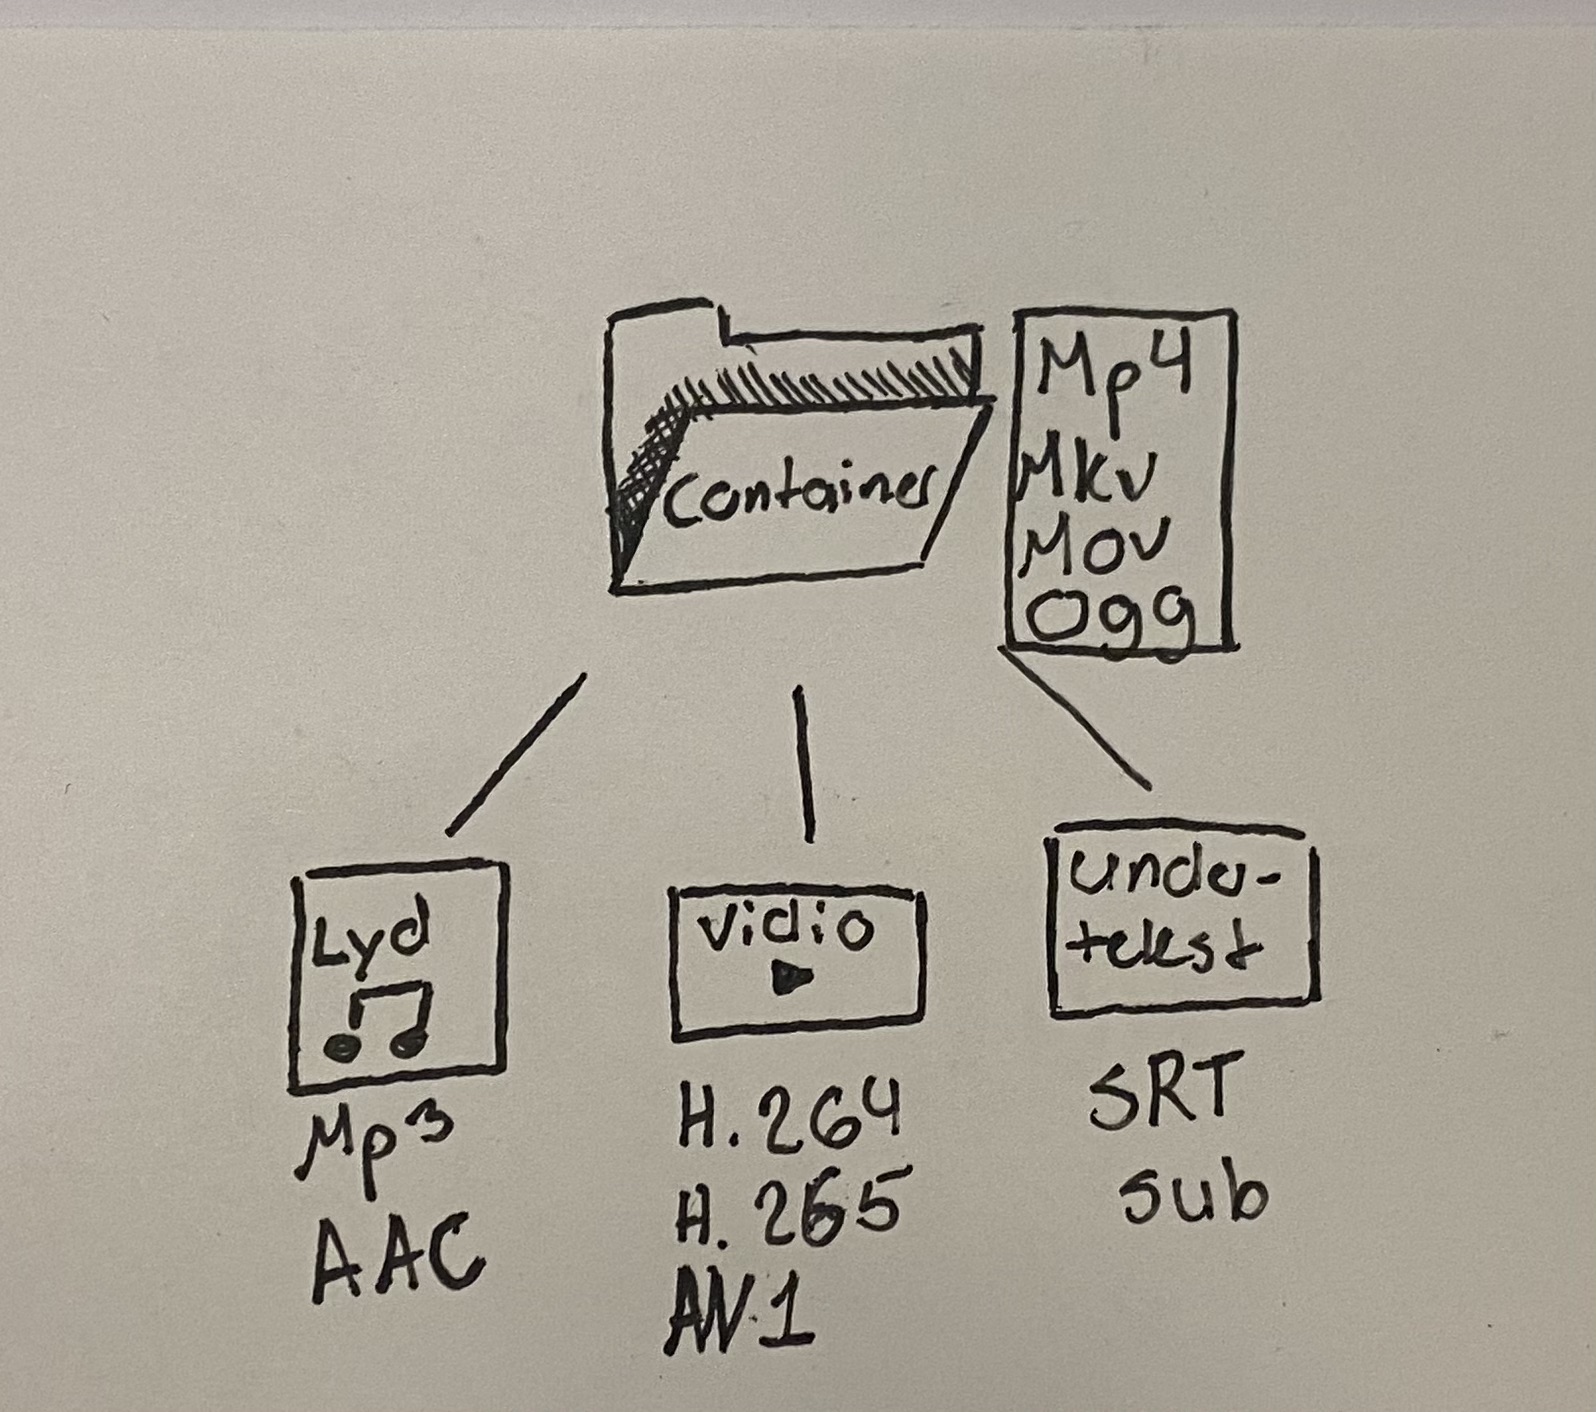 Container
Mp4
Mkv
Mov
Ogg
Lyd
Mp3
AAC
Vidio
H.264
H.265
AV1
Under-
tekst
SRT
sub